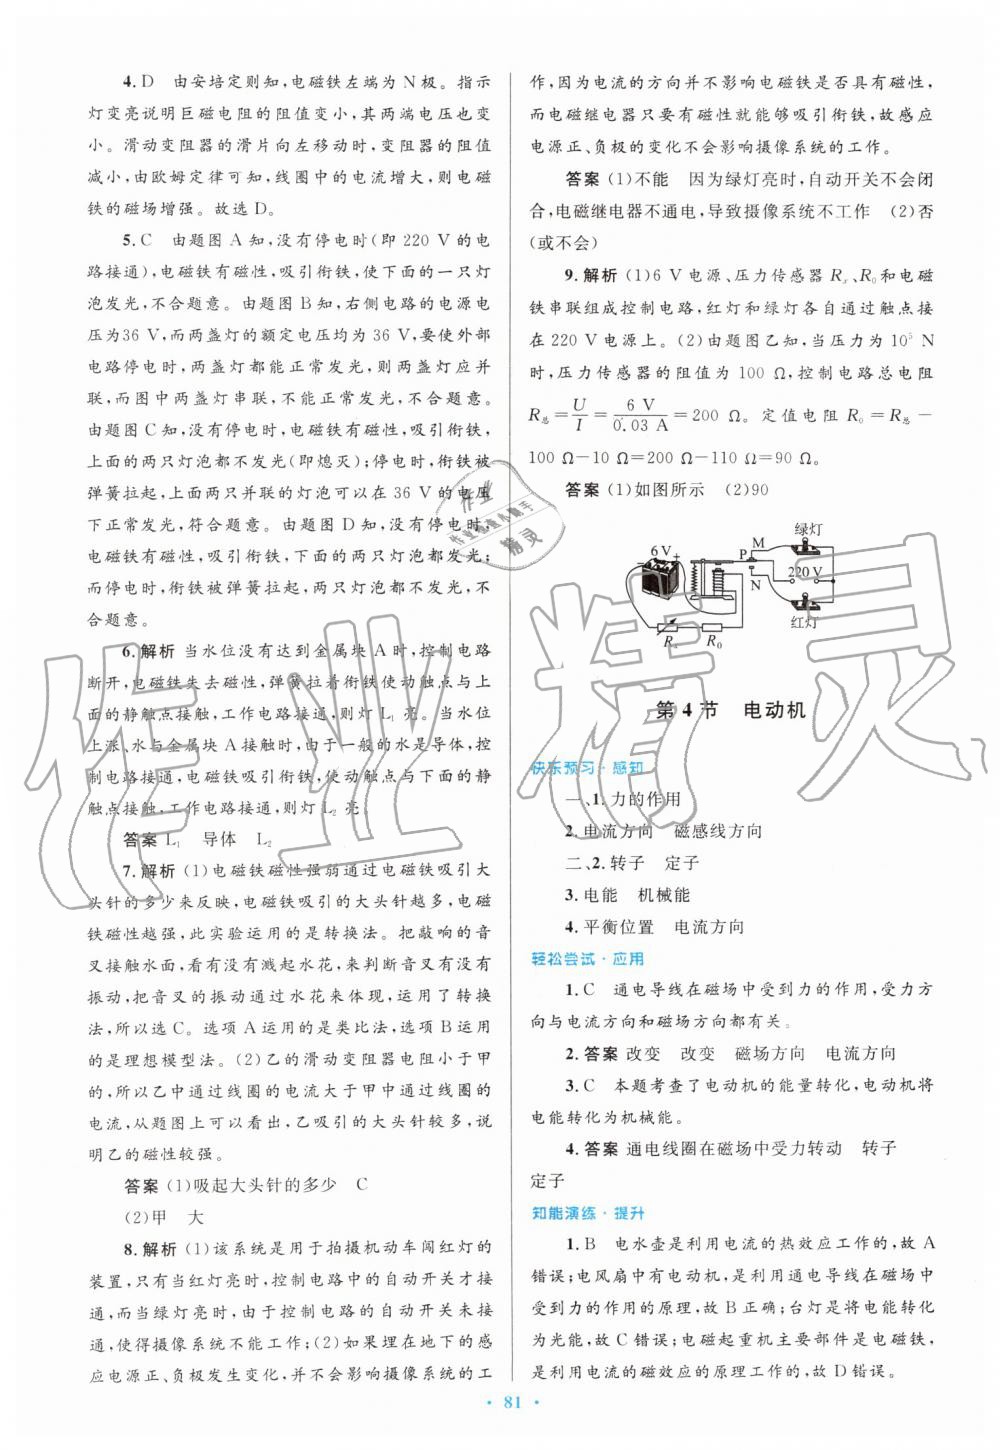 4. D 由安培定则知,电磁铁左端为N极。指示
灯变亮说明巨磁电阻的阻值变小,其两端电压也变
小。滑动变阻器的滑片向左移动时,变阻器的阻值
减小,由欧姆定律可知,线圈中的电流增大,则电磁
铁的磁场增强。故选D。
5. C 由题图A知,没有停电时(即220 V的电
路接通),电磁铁有磁性,吸引衔铁,使下面的一只灯
泡发光,不合题意。由题图B知,右侧电路的电源电
压为36 V,而两盏灯的额定电压均为36 V,要使外部
电路停电时,两盏灯都能正常发光,则两灯应并
联,而图中两盏灯串联,不能正常发光,不合题意。
由题图C知,没有停电时,电磁铁有磁性,吸引衔铁,
上面的两只灯泡都不发光(即熄灭);停电时,衔铁被
弹簧拉起,上面两只并联的灯泡可以在36 V的电压
下正常发光,符合题意。由题图D知,没有停电时,
电磁铁有磁性,吸引衔铁,下面的两只灯泡都发光;
而停电时,衔铁被弹簧拉起,两只灯泡都不发光,不
合题意。
6. 解析 当水位没有达到金属块A时,控制电路
断开,电磁铁失去磁性,弹簧拉着衔铁使动触点与上
面的静触点接触,工作电路接通,则灯L₁亮。当水位
上涨、水与金属块A接触时,由于一般的水是导体,控
制电路接通,电磁铁吸引衔铁,使动触点与下面的静
触点接触,工作电路接通,则灯L₂亮。
答案 L₁ 导体 L₂
7. 解析 (1)电磁铁磁性强弱通过电磁铁吸引大
头针的多少来反映,电磁铁吸引的大头针越多,电磁
铁磁性越强,此实验运用的是转换法。把敲响的音
叉接触水面,看有没有溅起水花,来判断音叉有没有
振动,把音叉的振动通过水花来体现,运用了转换
法,所以选C。选项A运用的是类比法,选项B运用
的是理想模型法。(2)乙的滑动变阻器电阻小于甲
的,所以乙中通过线圈的电流大于甲中通过线圈的
电流,从题图上可以看出,乙吸引的大头针较多,说
明乙的磁性较强。
答案 (1)吸起大头针的多少 C
(2)甲 大
8. 解析 (1)该系统是用于拍摄机动车闯红灯的
装置,只有当红灯亮时,控制电路中的自动开关才接
通,而当绿灯亮时,由于控制电路的自动开关未接
通,使得摄像系统不能工作;(2)如果埋在地下的感
应电源正、负极发生变化,并不会影响摄像系统的工
作,因为电流的方向并不影响电磁铁是否具有磁性,
而电磁继电器只要有磁性就能够吸引衔铁,故感应
电源正、负极的变化不会影响摄像系统的工作。
答案 (1)不能 因为绿灯亮时,自动开关不会闭
合,电磁继电器不通电,导致摄像系统不工作 (2)否
(或不会)
9. 解析 (1)6 V电源、压力传感器Rₓ、R₀和电磁
铁串联组成控制电路,红灯和绿灯各自通过触点接
在220 V电源上。(2)由题图乙知,当压力为10⁵ N
时,压力传感器的阻值为100 Ω,控制电路总电阻
R总=U/I=6 V/0.03 A=200 Ω。定值电阻R₀=R总-
100 Ω-10 Ω=200 Ω-110 Ω=90 Ω。
答案 (1)如图所示 (2)90
绿灯
6 V
M
P
N
220 V
红灯
Rₓ R₀
第4节 电动机
快乐预习·感知
一、1. 力的作用
2. 电流方向 磁感线方向
二、2. 转子 定子
3. 电能 机械能
4. 平衡位置 电流方向
轻松尝试·应用
1. C 通电导线在磁场中受到力的作用,受力方
向与电流方向和磁场方向都有关。
2. 答案 改变 改变 磁场方向 电流方向
3. C 本题考查了电动机的能量转化,电动机将
电能转化为机械能。
4. 答案 通电线圈在磁场中受力转动 转子
定子
知能演练·提升
1. B 电水壶是利用电流的热效应工作的,故A
错误;电风扇中有电动机,是利用通电导线在磁场中
受到力的作用的原理,故B正确;台灯是将电能转化
为光能,故C错误;电磁起重机主要部件是电磁铁,
是利用电流的磁效应的原理工作的,故D错误。
· 81 ·
作业精灵